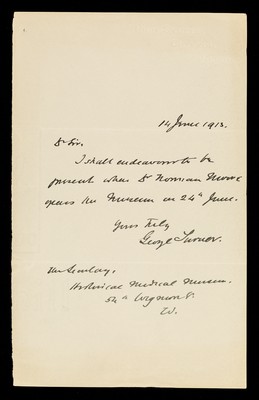 14 June 1913.
Dr Sir,
I shall endeavour to be
present when Dr Norman Moore
opens the Museum on 24th June.
Yours truly
George Turner.
The Secretary,
Historical Medical Museum.
54a Wigmore St
W.